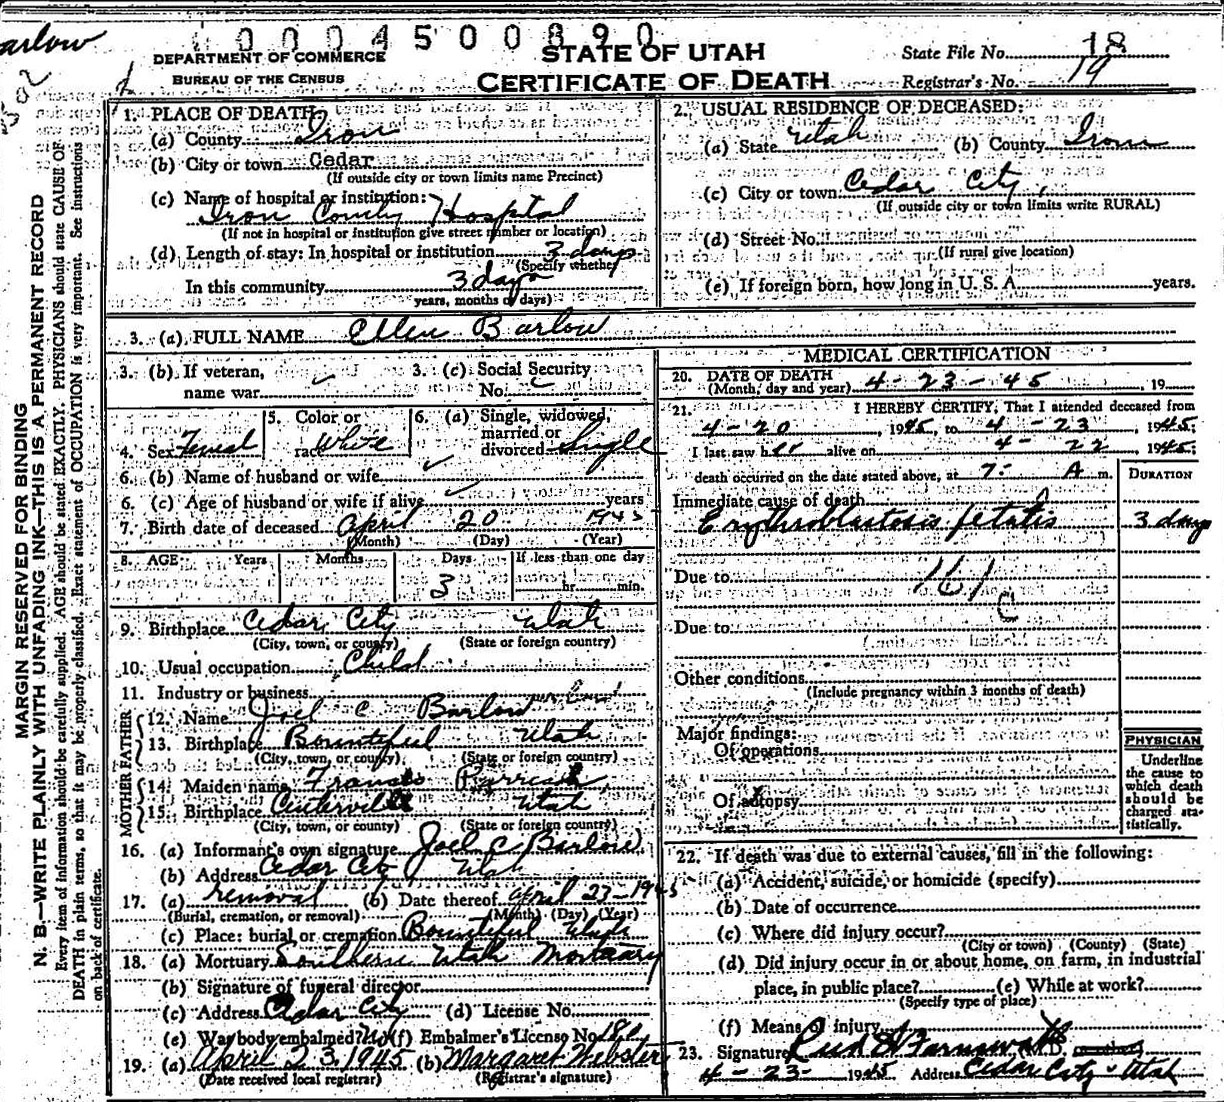 arlow
0004500890
DEPARTMENT OF COMMERCE
BUREAU OF THE CENSUS
STATE OF UTAH
CERTIFICATE OF DEATH
State File No. 18
Registrar's No. 19
MARGIN RESERVED FOR BINDING
N. B.—WRITE PLAINLY WITH UNFADING INK—THIS IS A PERMANENT RECORD
Every item of information should be carefully supplied. AGE should be stated EXACTLY. PHYSICIANS should state CAUSE OF
DEATH in plain terms, so that it may be properly classified. Exact statement of OCCUPATION is very important. See instructions
on back of certificate.
1. PLACE OF DEATH:
(a) County Iron
(b) City or town Cedar
(If outside city or town limits name Precinct)
(c) Name of hospital or institution:
Iron County Hospital
(If not in hospital or institution give street number or location)
(d) Length of stay: In hospital or institution 3 days
(Specify whether
In this community 3 days
years, months or days)
2. USUAL RESIDENCE OF DECEASED:
(a) State Utah (b) County Iron
(c) City or town Cedar City,
(If outside city or town limits write RURAL)
(d) Street No.
(If rural give location)
(e) If foreign born, how long in U. S. A. years.
3. (a) FULL NAME Ellen Barlow
3. (b) If veteran,
name war
3. (c) Social Security
No.
4. Sex Femal
5. Color or
race White
6. (a) Single, widowed,
married or
divorced Single
6. (b) Name of husband or wife
6. (c) Age of husband or wife if alive years
7. Birth date of deceased April 20 1945
(Month) (Day) (Year)
8. AGE Years Months Days If less than one day
3 hr. min.
9. Birthplace Cedar City Utah
(City, town, or county) (State or foreign country)
10. Usual occupation Child
11. Industry or business
FATHER
12. Name Joel C Barlow
13. Birthplace Bountiful Utah
(City, town, or county) (State or foreign country)
MOTHER
14. Maiden name Frances Parrish
15. Birthplace Centerville Utah
(City, town, or county) (State or foreign country)
16. (a) Informant's own signature Joel C Barlow
(b) Address Cedar City Utah
17. (a) removal (b) Date thereof April 23-1945
(Burial, cremation, or removal) (Month) (Day) (Year)
(c) Place: burial or cremation Bountiful Utah
18. (a) Mortuary Southern Utah Mortuary
(b) Signature of funeral director
(c) Address Cedar City (d) License No.
(e) Was body embalmed? No (f) Embalmer's License No.
19. (a) April 23 1945 (b) Margaret Webster
(Date received local registrar) (Registrar's signature)
MEDICAL CERTIFICATION
20. DATE OF DEATH
(Month, day and year) 4-23-45, 19
21. I HEREBY CERTIFY, That I attended deceased from
4-20, 1945, to 4-23, 1945;
I last saw her alive on 4-22, 1945;
death occurred on the date stated above, at 7: A m.
DURATION
Immediate cause of death
Erythroblastosis fetalis 3 days
Due to 161
c
Due to
Other conditions
(Include pregnancy within 3 months of death)
Major findings:
Of operations
Of autopsy
PHYSICIAN
Underline
the cause to
which death
should be
charged sta-
tistically.
22. If death was due to external causes, fill in the following:
(a) Accident, suicide, or homicide (specify)
(b) Date of occurrence
(c) Where did injury occur?
(City or town) (County) (State)
(d) Did injury occur in or about home, on farm, in industrial
place, in public place? (e) While at work?
(Specify type of place)
(f) Means of injury
23. Signature Reed W Farnsworth M.D.
4-23-1945 Address Cedar City - Utah